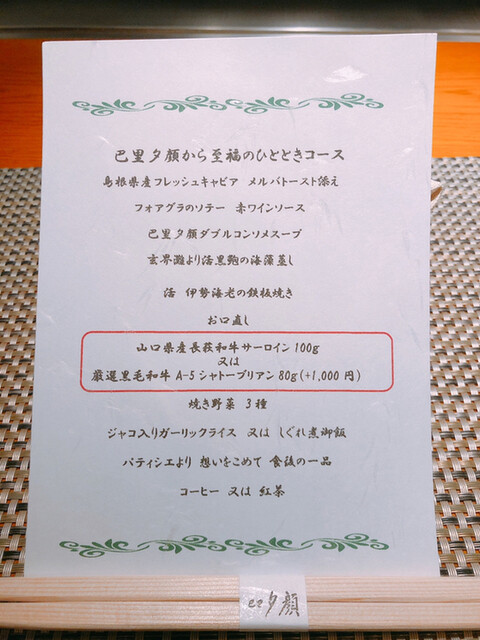 巴里夕顔から至福のひとときコース
島根県産フレッシュキャビア メルバトースト添え
フォアグラのソテー 赤ワインソース
巴里夕顔ダブルコンソメスープ
玄界灘より活黒鮑の海藻蒸し
活 伊勢海老の鉄板焼き
お口直し
山口県産長萩和牛サーロイン100g
又は
厳選黒毛和牛 A-5シャトーブリアン80g(+1,000円)
焼き野菜 3種
ジャコ入りガーリックライス 又は しぐれ煮御飯
パティシエより 想いをこめて 食後の一品
コーヒー 又は 紅茶
夕顔